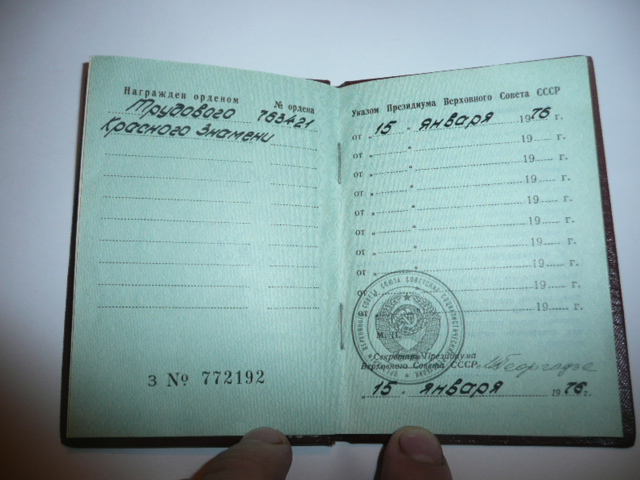 Награжден орденом № ордена
Трудового 763421
Красного Знамени
З № 772192
Указом Президиума Верховного Совета СССР
от „ 15 " января 1976 г.
от „ " 19 г.
от „ " 19 г.
от „ " 19 г.
от „ " 19 г.
от „ " 19 г.
от „ " 19 г.
от „ " 19 г.
от 19 г.
М. П.
Секретарь Президиума
Верховного Совета СССР
„ 15 " января 1976 г.